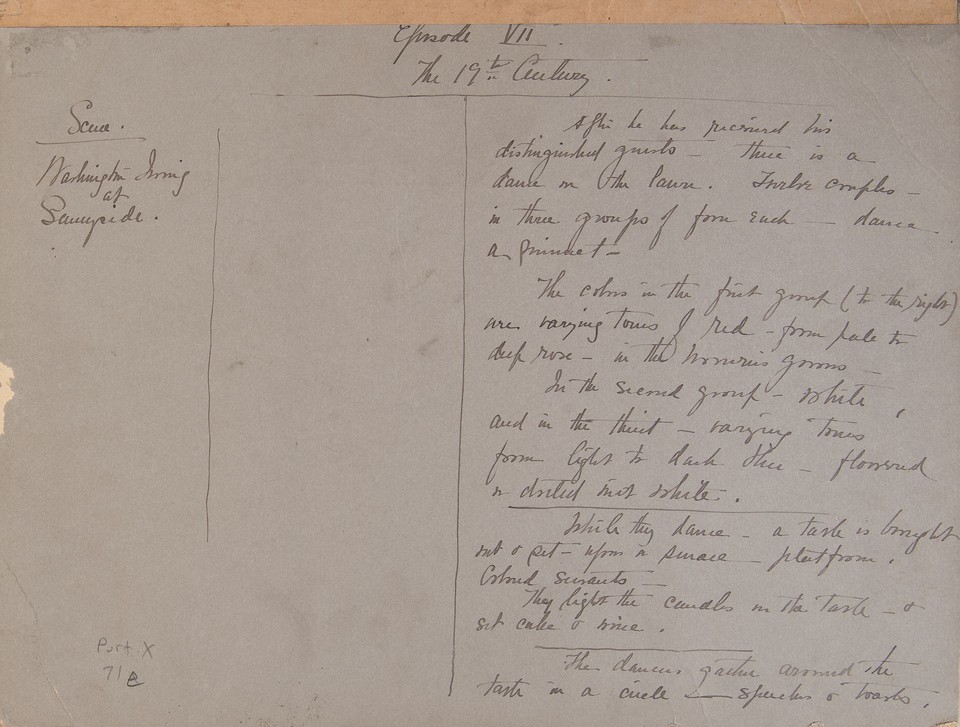 Episode VII.
The 19th Century.
Scene.
Washington Irving
at
Sunnyside.
After he has received his
distinguished guests — there is a
dance on the lawn. Twelve couples —
in three groups of four each — dance
a minuet —
The colors in the first group (to the right)
are varying tones of red — from pale to
deep rose — in the women's gowns —
In the second group — white,
and in the third — varying tones
from light to dark blue — flowered
or dotted with white.
While they dance — a table is brought
out & set — upon a small platform.
Colored servants —
They light the candles on the table — &
set cake & wine.
The dancers gather around the
table in a circle — speeches & toasts.
Port. X
71e